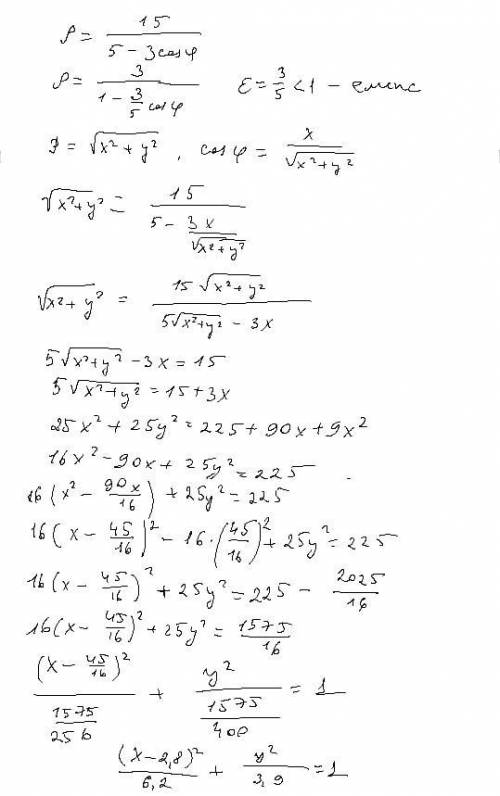 ρ = 15 / (5 - 3cosφ)
ρ = 3 / (1 - 3/5 cosφ) ε = 3/5 < 1 - елипс
ρ = √(x² + y²), cosφ = x / √(x² + y²)
√(x² + y²) = 15 / (5 - 3x / √(x² + y²))
√(x² + y²) = 15√(x² + y²) / (5√(x² + y²) - 3x)
5√(x² + y²) - 3x = 15
5√(x² + y²) = 15 + 3x
25x² + 25y² = 225 + 90x + 9x²
16x² - 90x + 25y² = 225
16(x² - 90x/16) + 25y² = 225
16(x - 45/16)² - 16·(45/16)² + 25y² = 225
16(x - 45/16)² + 25y² = 225 - 2025/16
16(x - 45/16)² + 25y² = 1575/16
(x - 45/16)² / (1575/256) + y² / (1575/400) = 1
(x - 2,8)² / 6,2 + y² / 3,9 = 1